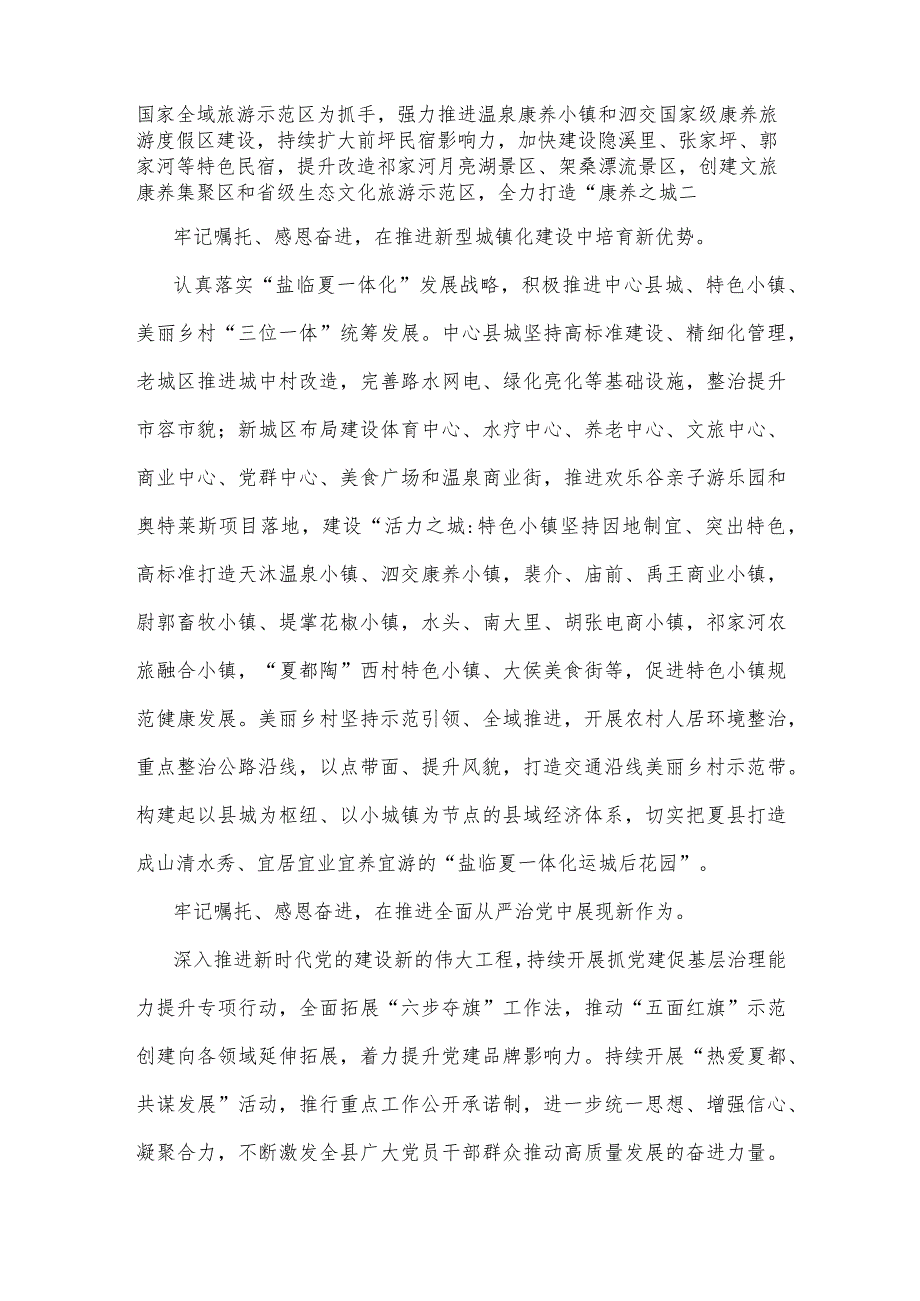 国家全域旅游示范区为抓手，强力推进温泉康养小镇和泗交国家级康养旅
游度假区建设，持续扩大前坪民宿影响力，加快建设隐溪里、张家坪、郭
家河等特色民宿，提升改造祁家河月亮湖景区、架桑漂流景区，创建文旅
康养集聚区和省级生态文化旅游示范区，全力打造“康养之城二
牢记嘱托、感恩奋进，在推进新型城镇化建设中培育新优势。
认真落实“盐临夏一体化”发展战略，积极推进中心县城、特色小镇、
美丽乡村“三位一体”统筹发展。中心县城坚持高标准建设、精细化管理，
老城区推进城中村改造，完善路水网电、绿化亮化等基础设施，整治提升
市容市貌；新城区布局建设体育中心、水疗中心、养老中心、文旅中心、
商业中心、党群中心、美食广场和温泉商业街，推进欢乐谷亲子游乐园和
奥特莱斯项目落地，建设“活力之城:特色小镇坚持因地制宜、突出特色，
高标准打造天沐温泉小镇、泗交康养小镇，裴介、庙前、禹王商业小镇，
尉郭畜牧小镇、堤掌花椒小镇，水头、南大里、胡张电商小镇，祁家河农
旅融合小镇，“夏都陶”西村特色小镇、大侯美食街等，促进特色小镇规
范健康发展。美丽乡村坚持示范引领、全域推进，开展农村人居环境整治，
重点整治公路沿线，以点带面、提升风貌，打造交通沿线美丽乡村示范带。
构建起以县城为枢纽、以小城镇为节点的县域经济体系，切实把夏县打造
成山清水秀、宜居宜业宜养宜游的“盐临夏一体化运城后花园”。
牢记嘱托、感恩奋进，在推进全面从严治党中展现新作为。
深入推进新时代党的建设新的伟大工程,持续开展抓党建促基层治理能
力提升专项行动，全面拓展“六步夺旗”工作法，推动“五面红旗”示范
创建向各领域延伸拓展，着力提升党建品牌影响力。持续开展“热爱夏都、
共谋发展”活动，推行重点工作公开承诺制，进一步统一思想、增强信心、
凝聚合力，不断激发全县广大党员干部群众推动高质量发展的奋进力量。